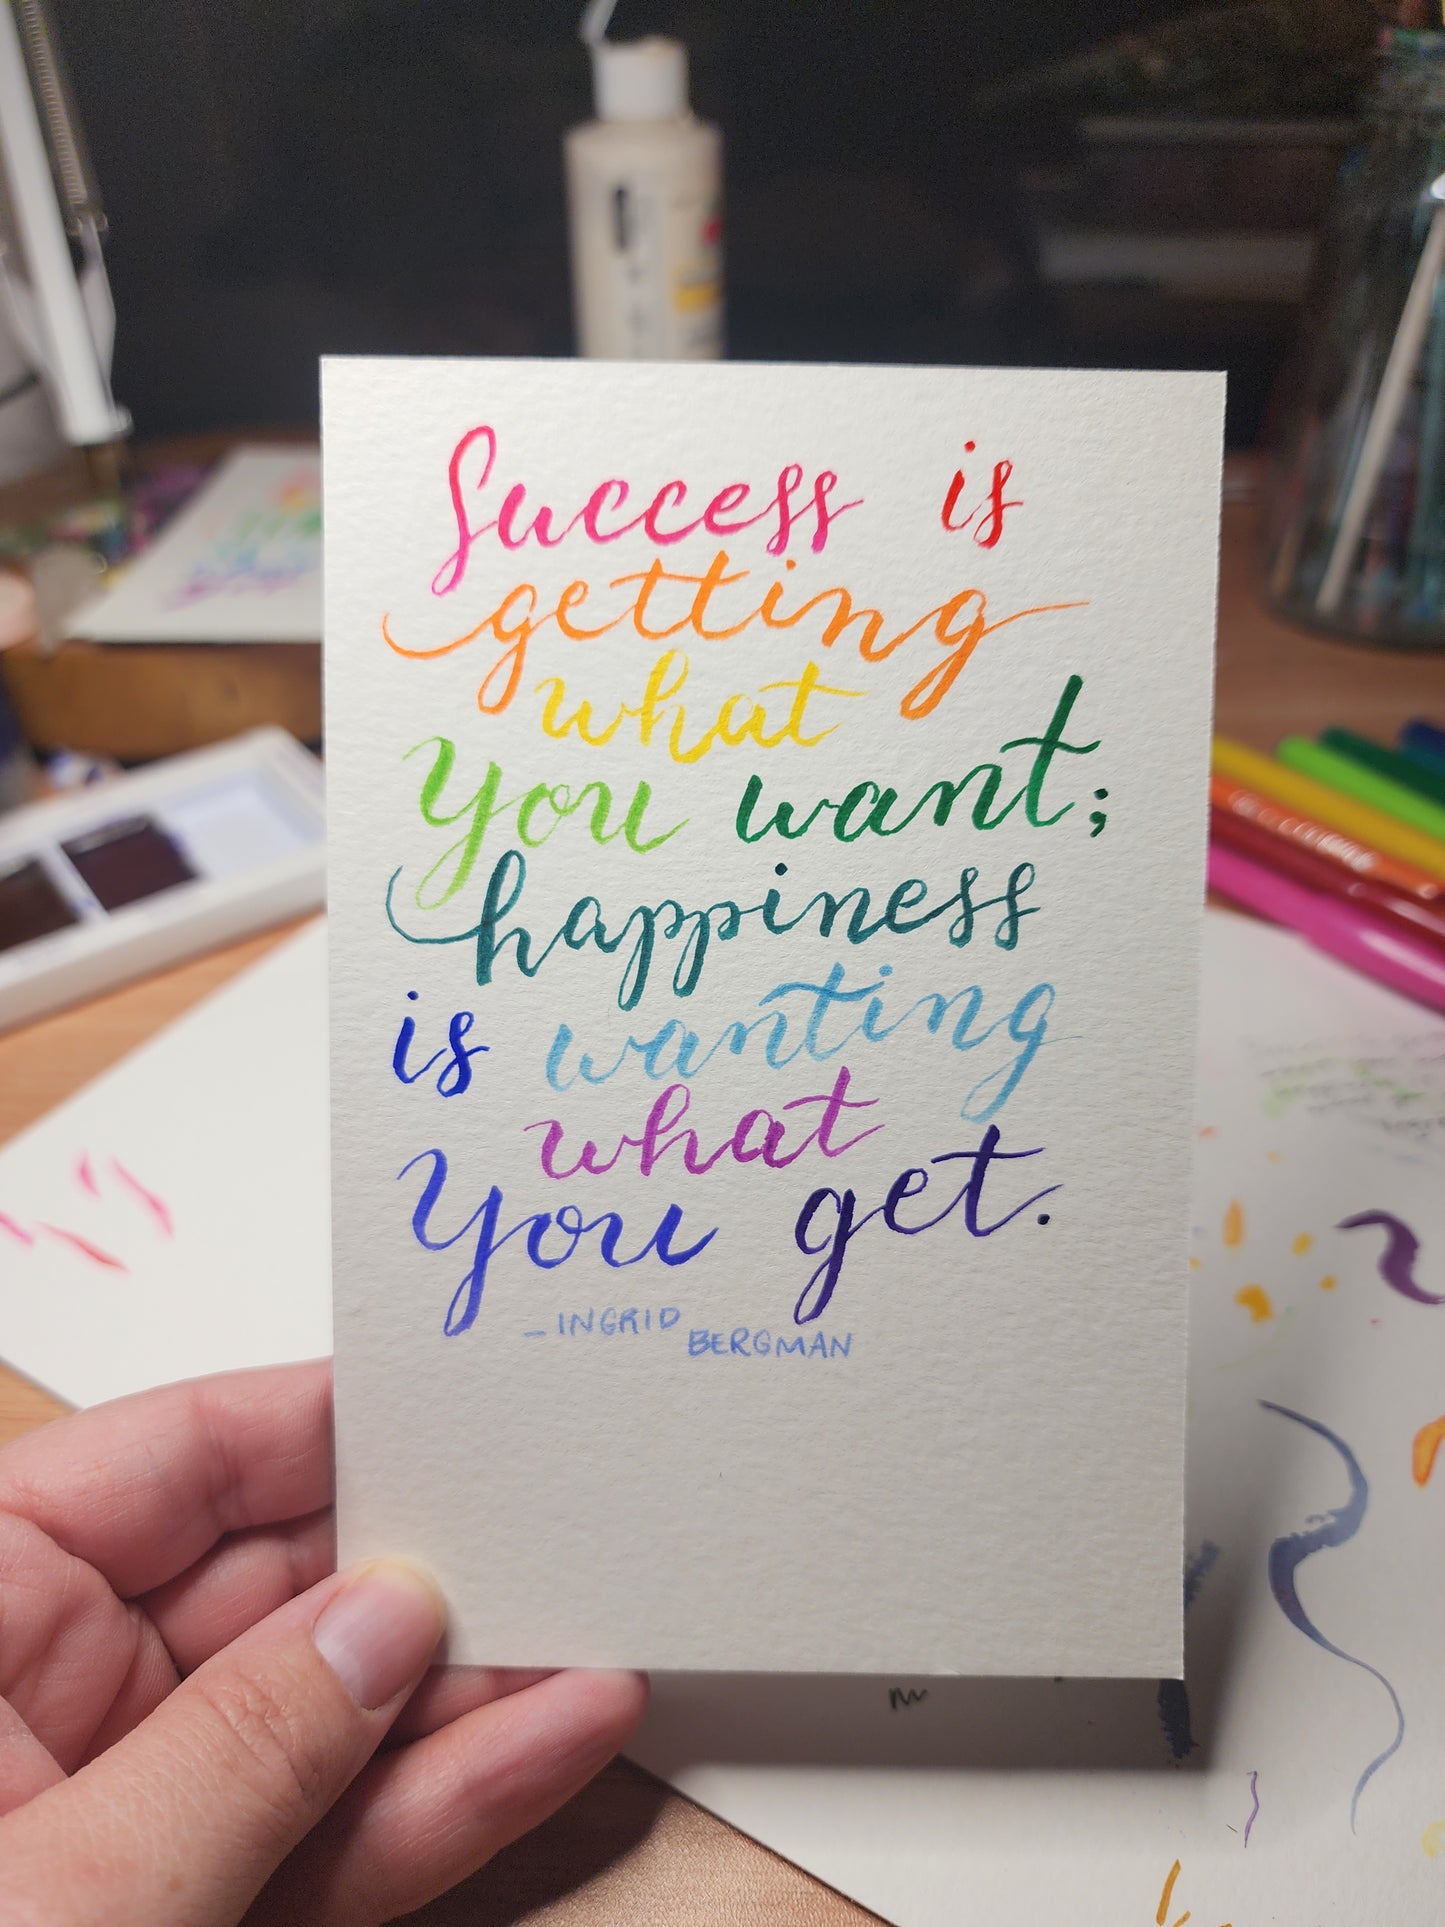 Success is
getting
what
you want;
happiness
is wanting
what
you get.
- INGRID
BERGMAN